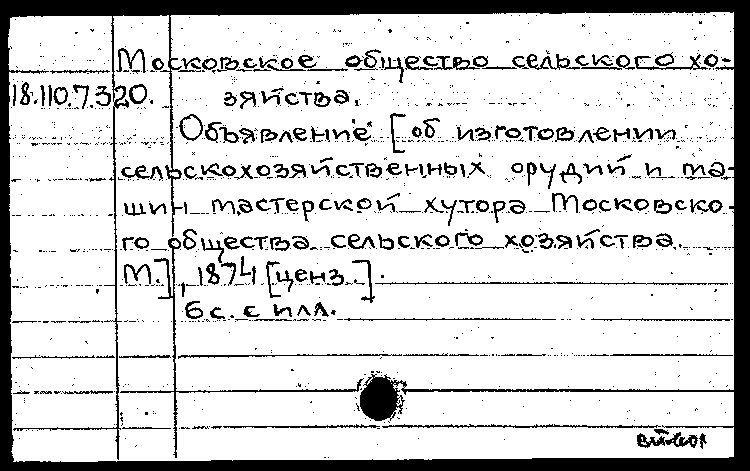 Московское общество сельского хо-
18.110.7.320. зяйства.
Объявление [об изготовлении
сельскохозяйственных орудий и ма-
шин мастерской хутора Московско-
го общества сельского хозяйства.
М.], 1874 [ценз.].
6 с. с илл.